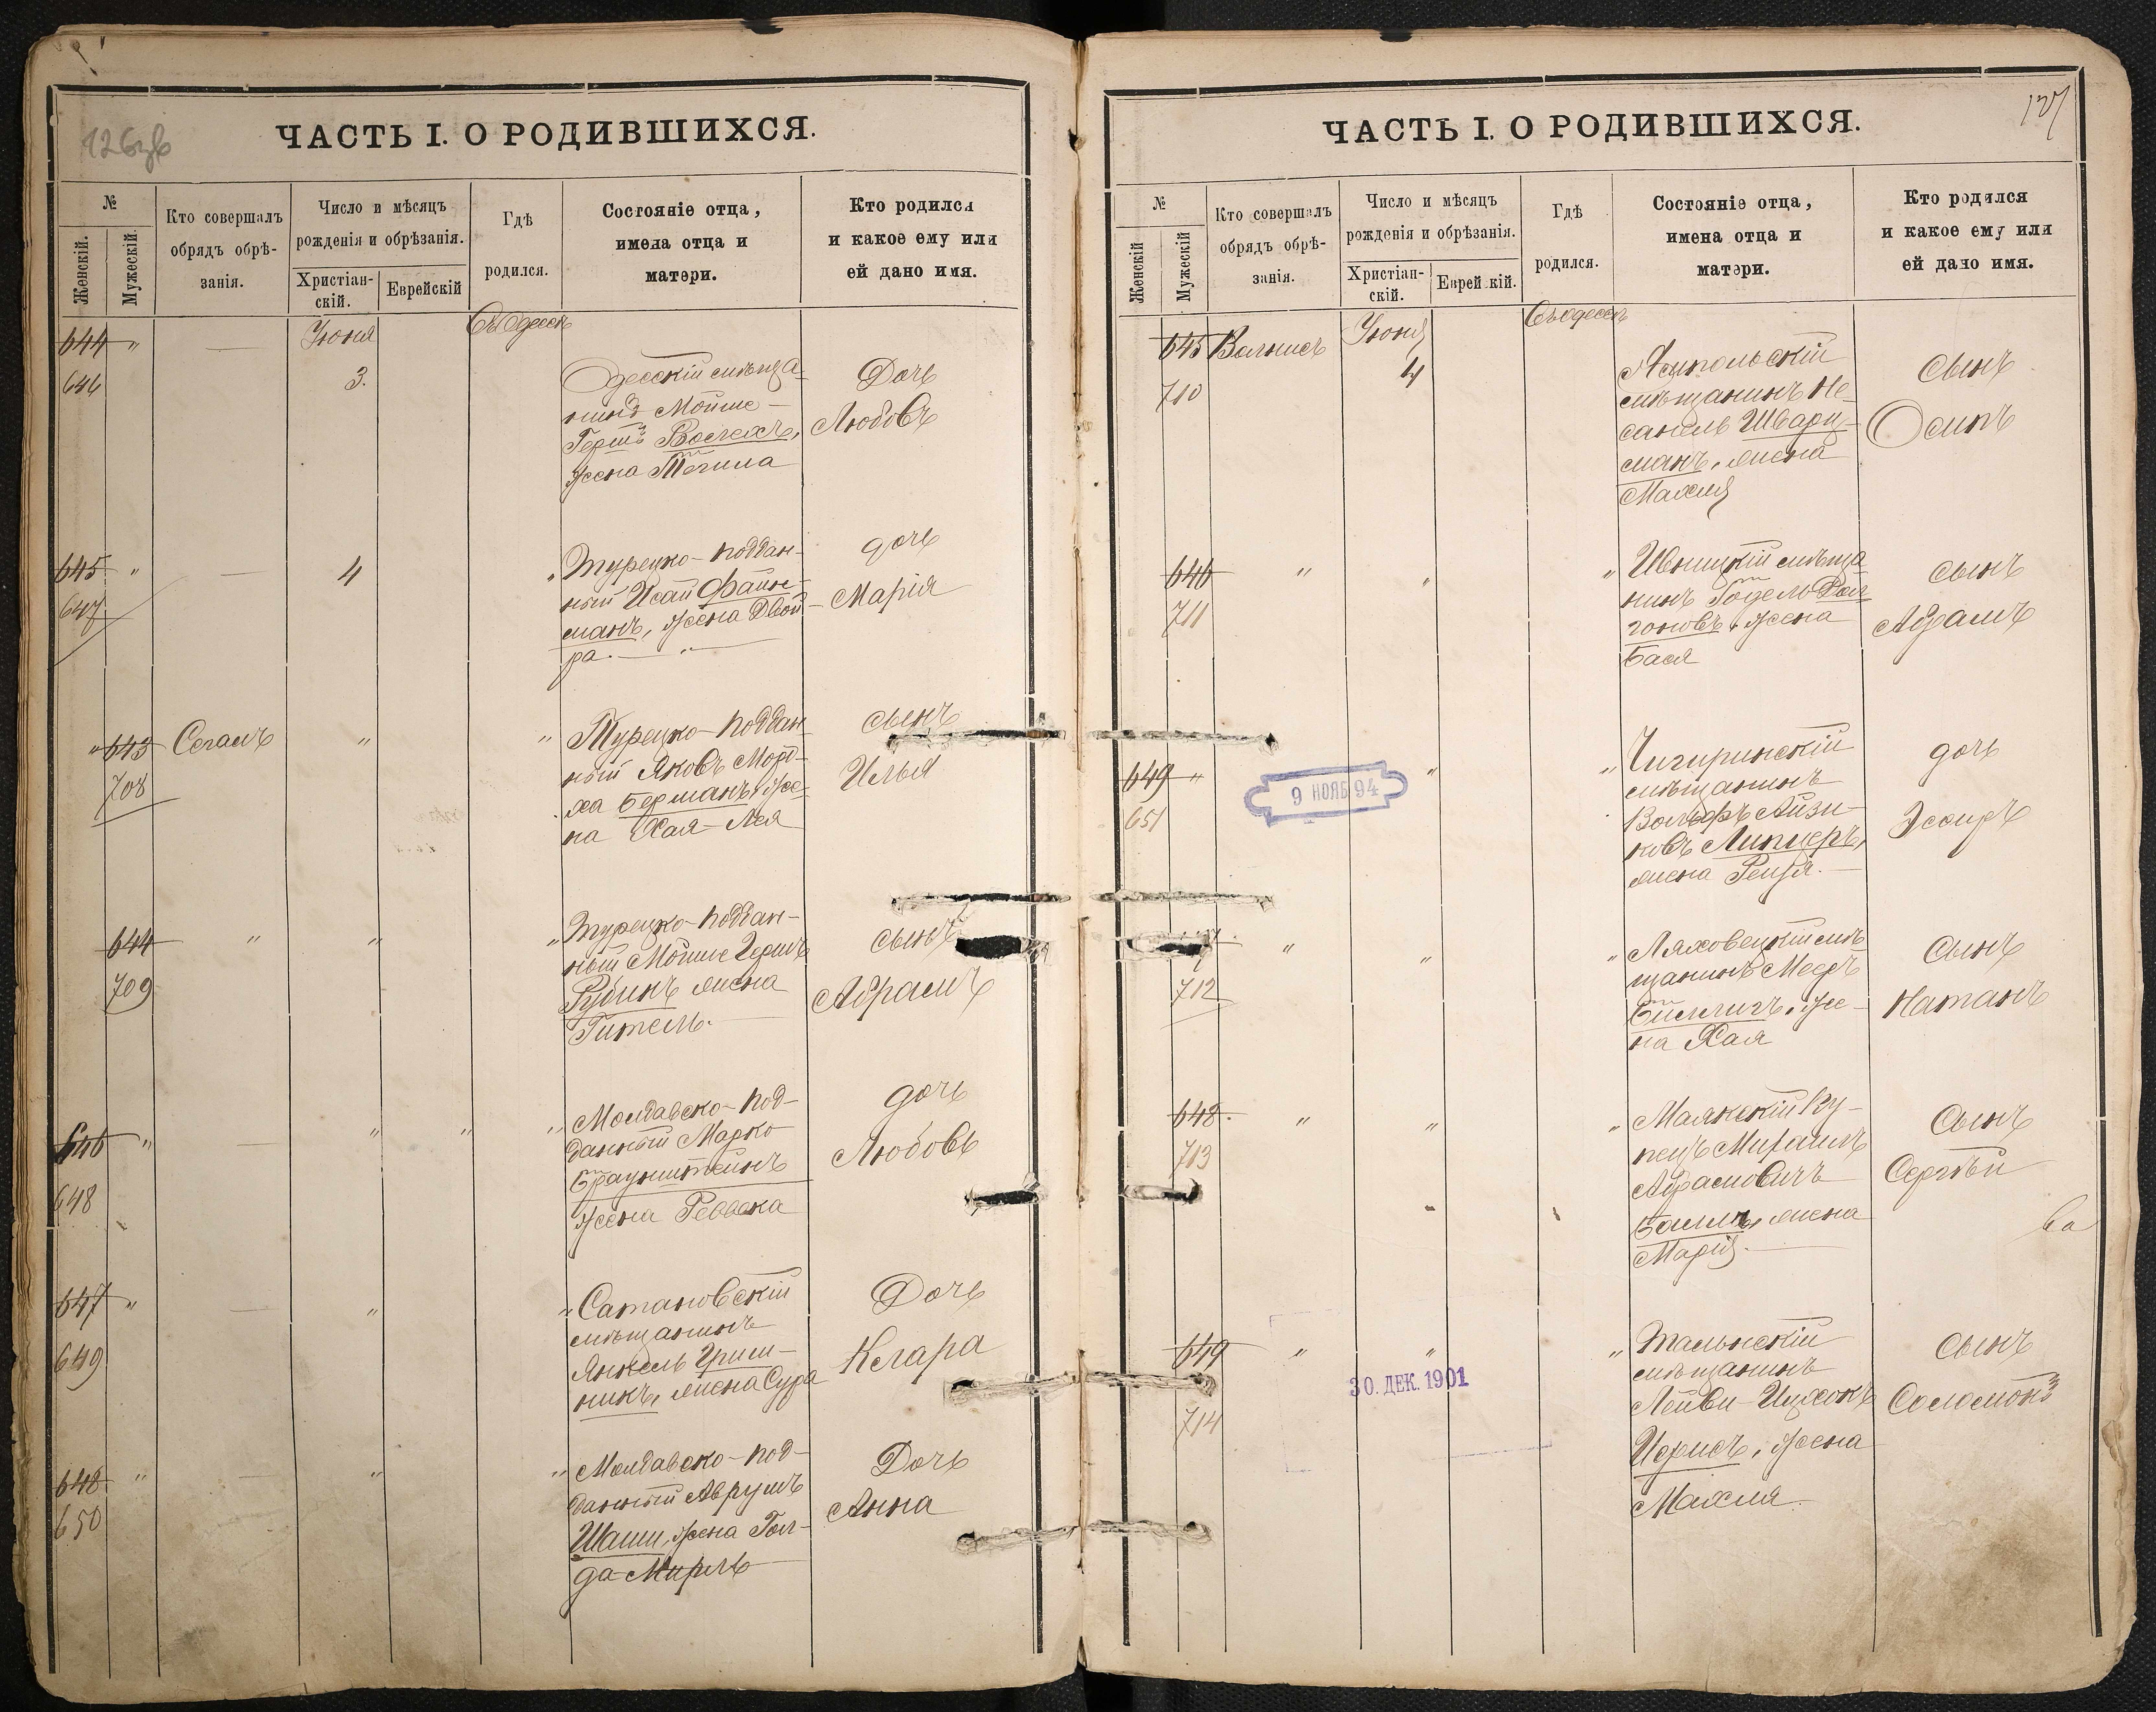 126об
ЧАСТЬ I. О РОДИВШИХСЯ.
№
Женскій.
Мужескій.
Кто совершалъ
обрядъ обрѣ-
занія.
Число и мѣсяцъ
рожденія и обрѣзанія.
Христіан-
скій.
Еврейскій
Гдѣ
родился.
Состояніе отца,
имена отца и
матери.
Кто родился
и какое ему или
ей дано имя.
644 "
646
—
Іюня
3.
Въ Одессѣ
Одесскій мѣща-
нинъ Мойше-
Гершъ
жена
Дочь
Любовь
645 "
647
—
4
" Турецко-поддан-
ный Исай Файн-
манъ, жена Двой-
ра. — " —
дочь
Марія
" 643
708
Сегалъ
"
" Турецко-поддан-
ный Яковъ Морд-
ха Берманъ, же-
на Хая-Лея
сынъ
Илья
644
709
"
"
" Турецко-поддан-
ный Мойше Гершъ
Рубинъ жена
Гитель.
сынъ
Абрамъ
646 "
648
—
"
"
" Молдавско-под-
данный Марко
Браунштейнъ
жена Ревекка
дочь
Любовь
647 "
649
—
"
" Сатановскій
мѣщанинъ
Янкель Гриш-
никъ, жена Сура
Дочь
Клара
648 "
650
—
"
" Молдавско-под-
данный Аврумъ
жена Гол-
да-Мирль
Дочь
Анна
127
ЧАСТЬ I. О РОДИВШИХСЯ.
№
Женскій
Мужескій
Кто совершалъ
обрядъ обрѣ-
занія.
Число и мѣсяцъ
рожденія и обрѣзанія.
Христіан-
скій.
Еврейскій.
Гдѣ
родился.
Состояніе отца,
имена отца и
матери.
Кто родился
и какое ему или
ей дано имя.
645
710
Вальтеръ
Іюня
4
Въ Одессѣ
мѣщанинъ Не-
саниль Шварц-
манъ, жена
Махля
сынъ
Осипъ
646
711
"
"
" мѣща-
нинъ
жена
Бася
сынъ
Абрамъ
649 "
651
9 НОЯБ 94
"
" Чигиринскій
мѣщанинъ
Вольфъ Айзи-
ковъ Липнеръ,
жена Рейзя.
дочь
Эсѳирь
712
"
"
" Ляховецкій мѣ-
щанинъ Мееръ
же-
на Хая
Сынъ
Натанъ
648
713
"
"
" Маякскій Ку-
пецъ
Абрамовичъ
жена
Марія.
Сынъ
Сергѣй
649
714
"
"
30. ДЕК. 1901
" Тальнскій
мѣщанинъ
Лейви-Ицхокъ
жена
Махля.
сынъ
Соломонъ